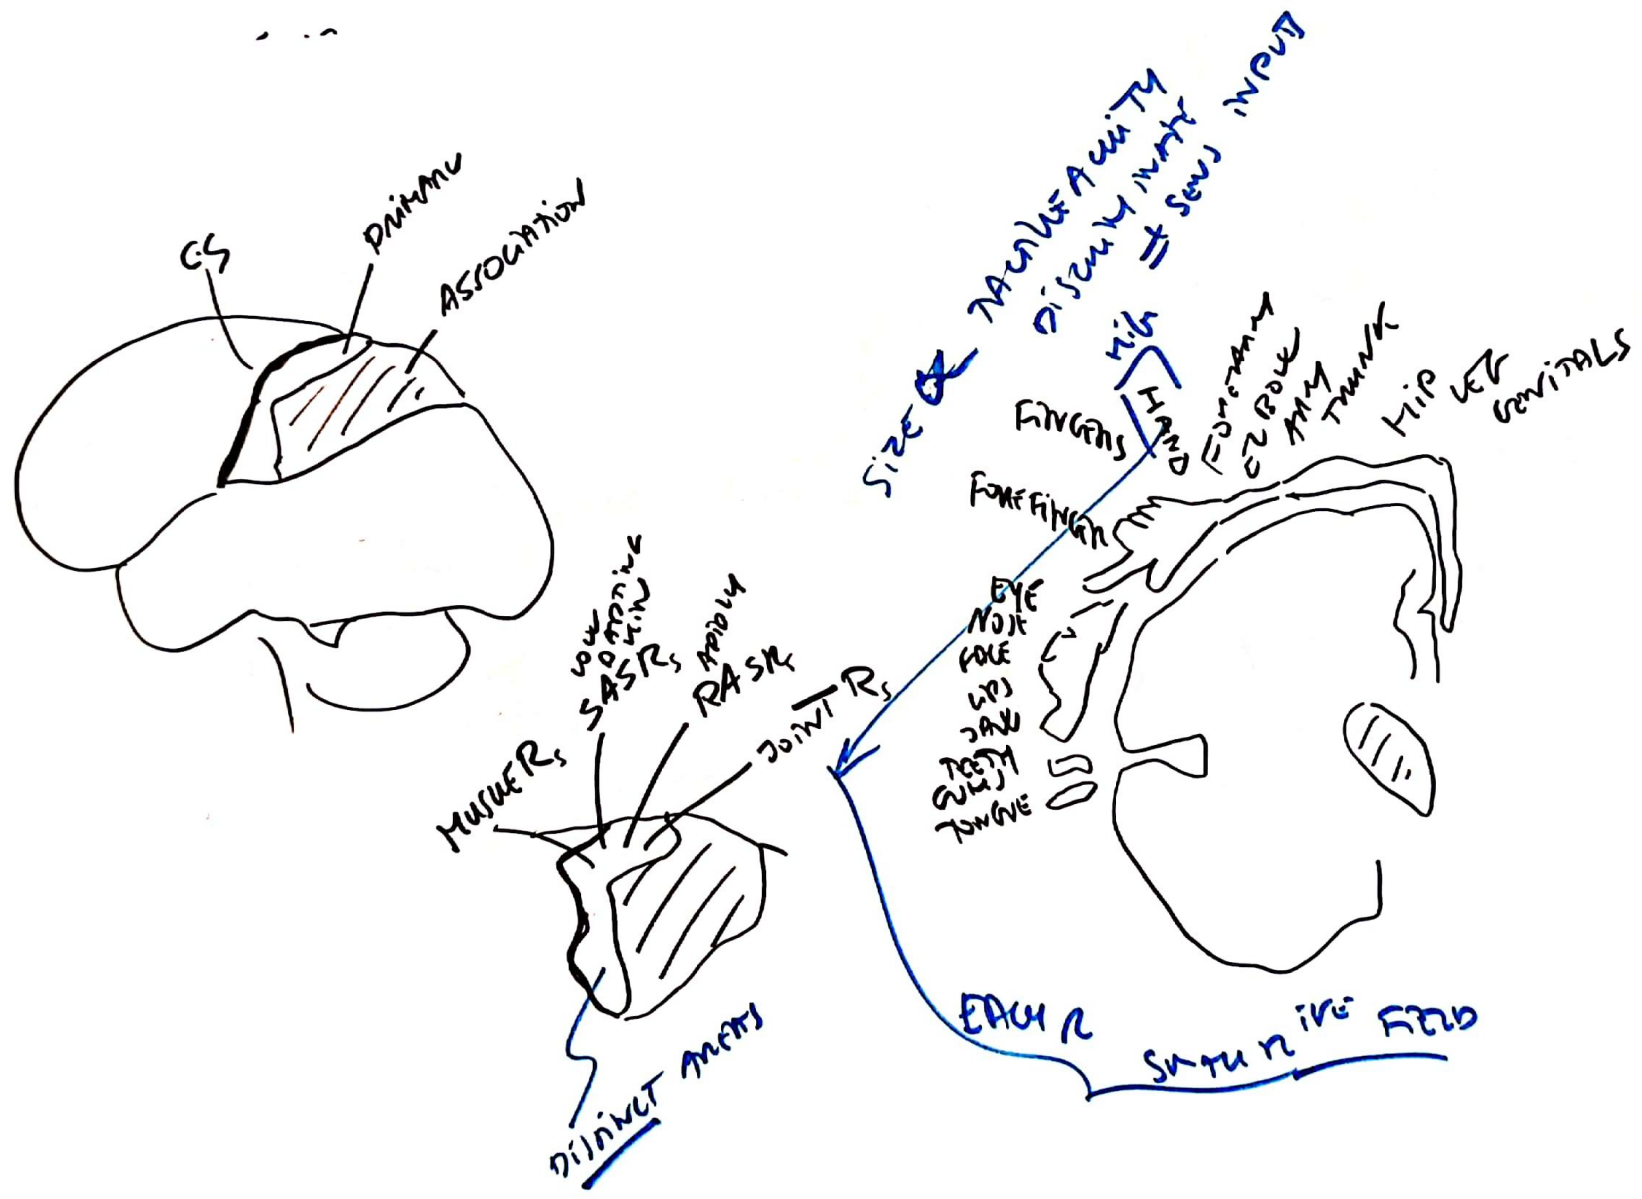 CS
PRIMARY
ASSOCIATION
SIZE α TACTILE ACUITY
DISCRIMINATE
# SENS INPUTS
HIG
HAND
FINGERS
FOREFINGR
FOREARM
ELBOW
ARM
TRUNK
HIP LEG
GENITALS
EYE
NOSE
FACE
LIPS
JAW
TEETH
GUMS
TONGUE
MUSCLE Rs
SLOW
ADAPTING
SKIN
SASRs
RAPIDLY
RASRs
JOINT Rs
DISTINCT AREAS
EACH R
IVE FIELD